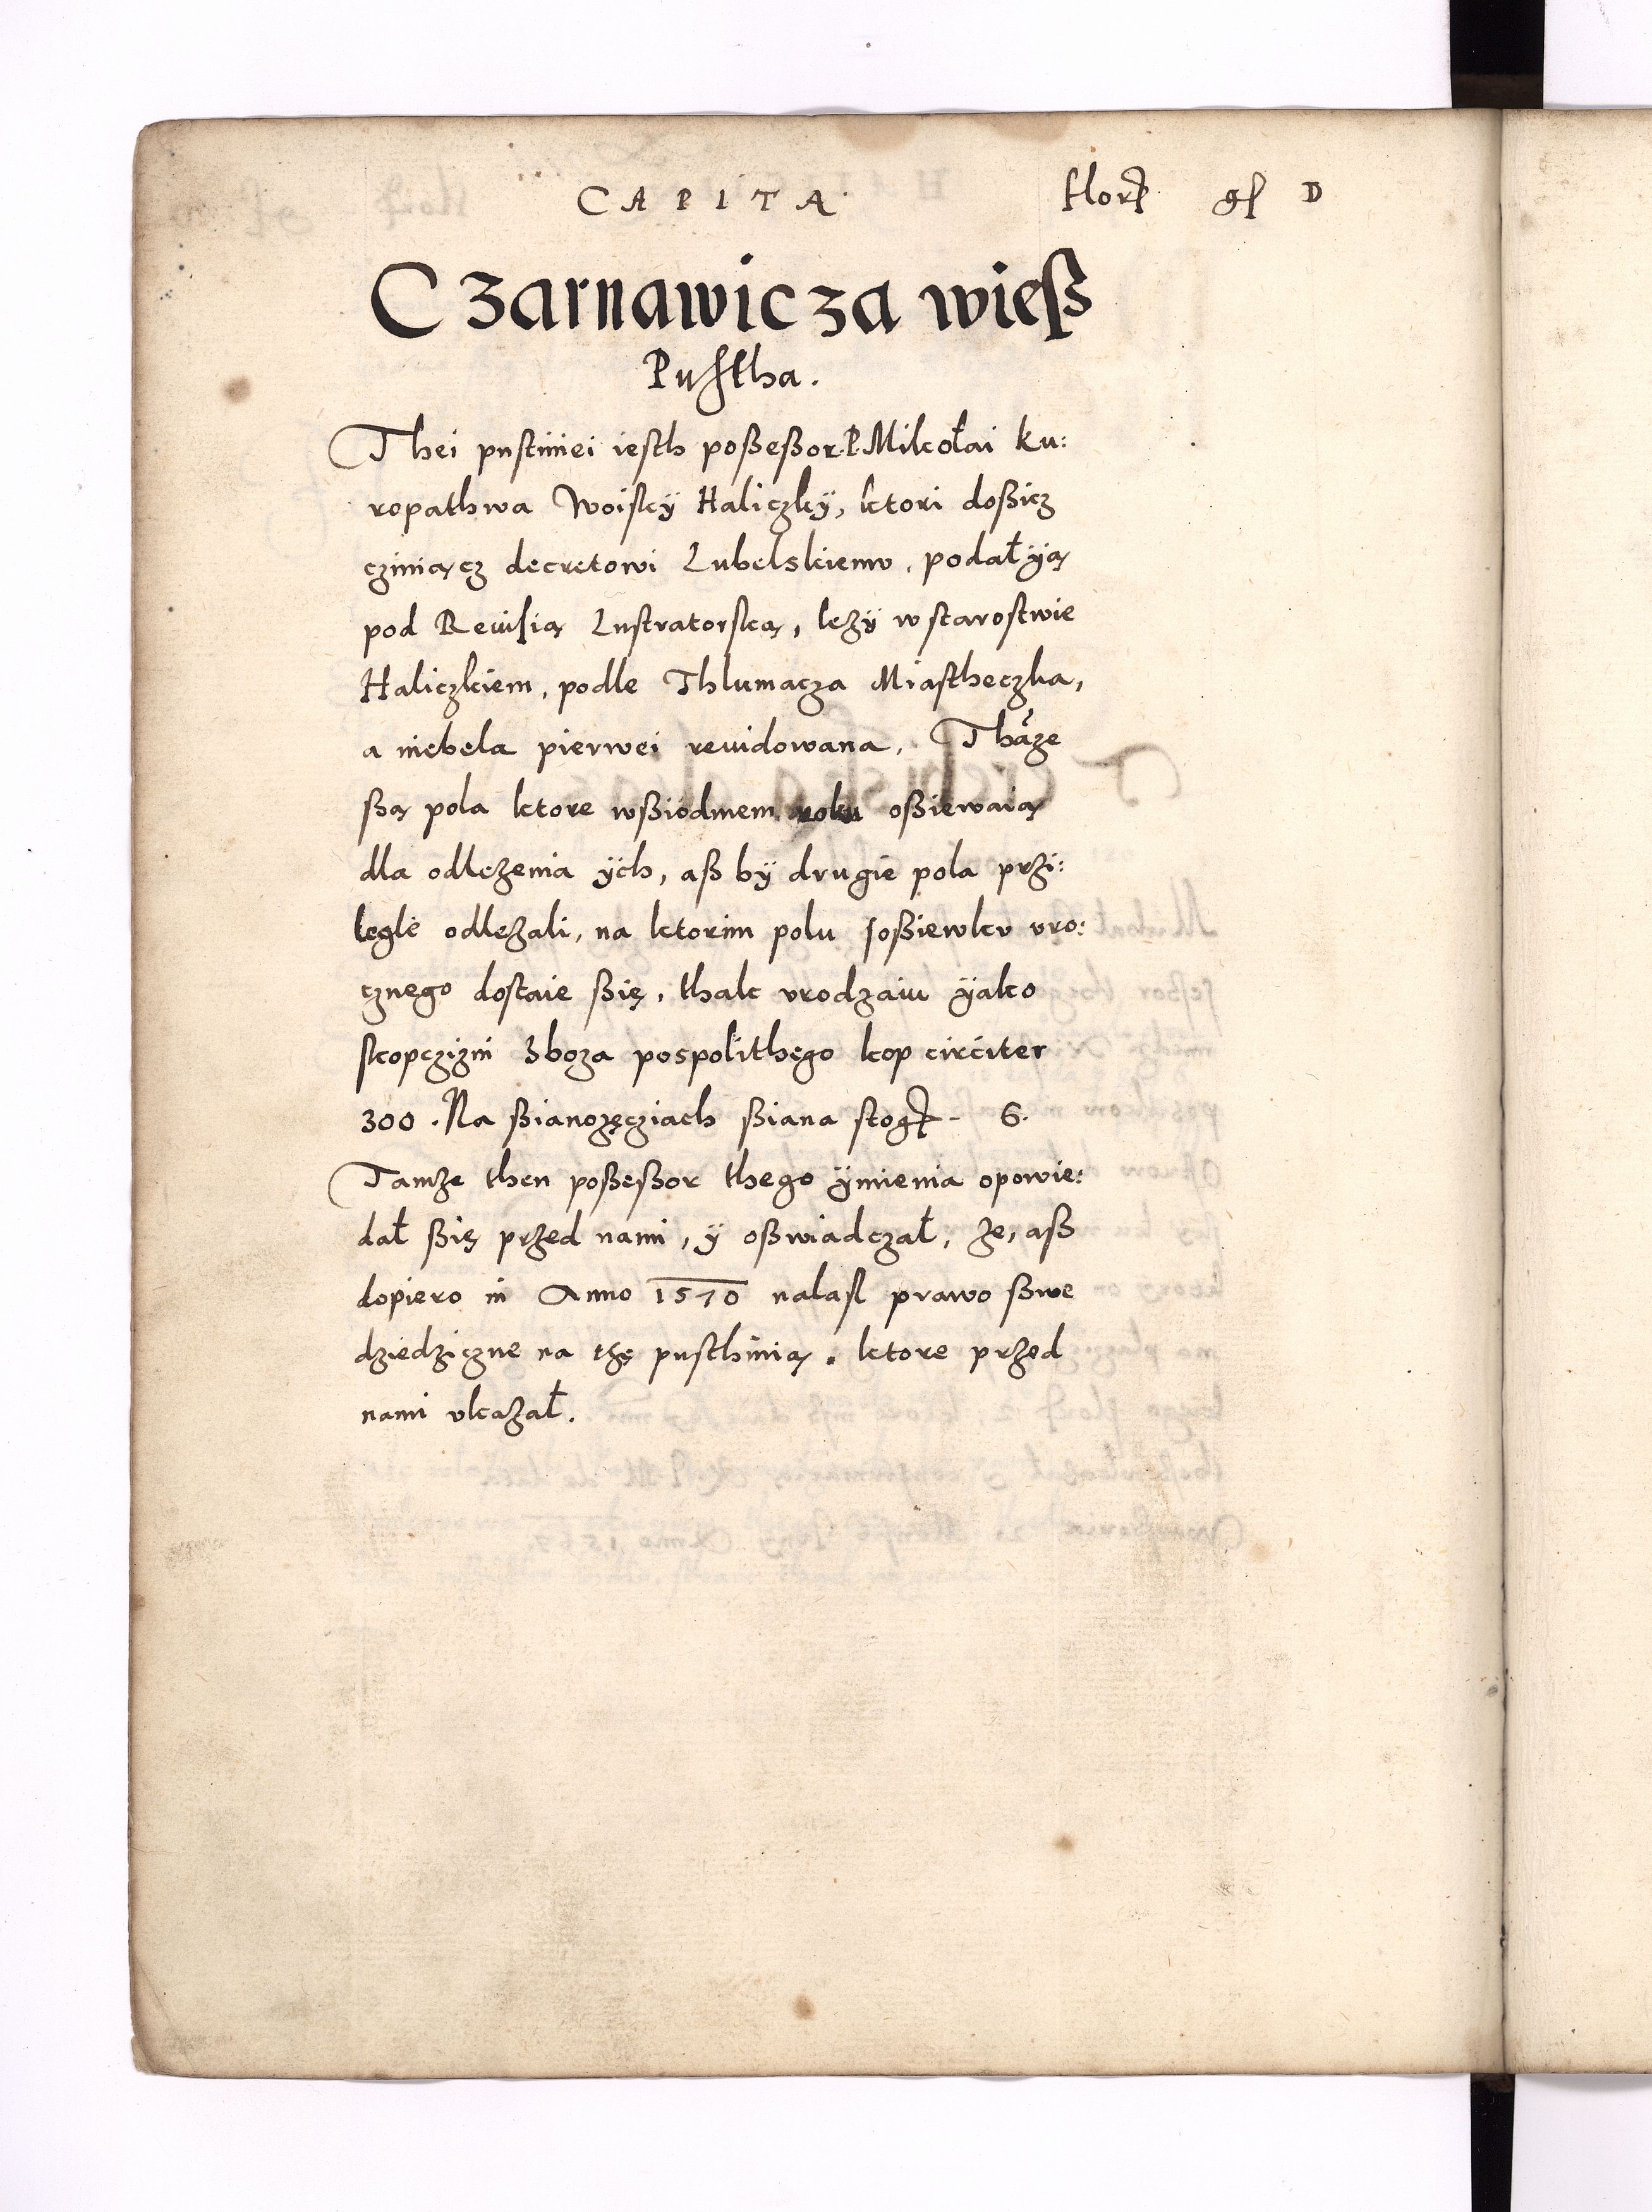 CAPITA flor gl D
Czarnawicza wieß
Pusttha.
Thei pustiniei iesth poßeßor P. Mikołai Ku:
ropathwa Woiskÿ Haliczkÿ, ktori doßicz
cziniącz decretowi Lubelskiemv, podał ÿą
pod Reuisią Lustratorską, leżÿ w starostwie
Haliczkiem, podle Thlumacza Miastheczka,
a niebela pierwei reuidowana, Thąże
ßą pola ktore wßiodmem roku oßiewaią
dla odleżenia ÿch, aß bÿ drugie pola przi:
legle odleżali, na ktorim polu soßiewkv vro:
cznego dostaie ßię, thak vrodzaiu ÿako
skopczizni zboza pospolithego kop circiter
300. Na ßianożęcziach ßiana stog - 6.
Tamże then poßeßor thego ÿmienia opowie:
dał ßię przed nami, ÿ oßwiadczał, że, aß
dopiero in Anno 1570 nalasl prawo ßwe
dziedziczne na thę pusthinią. ktore przed
nami vkazał.